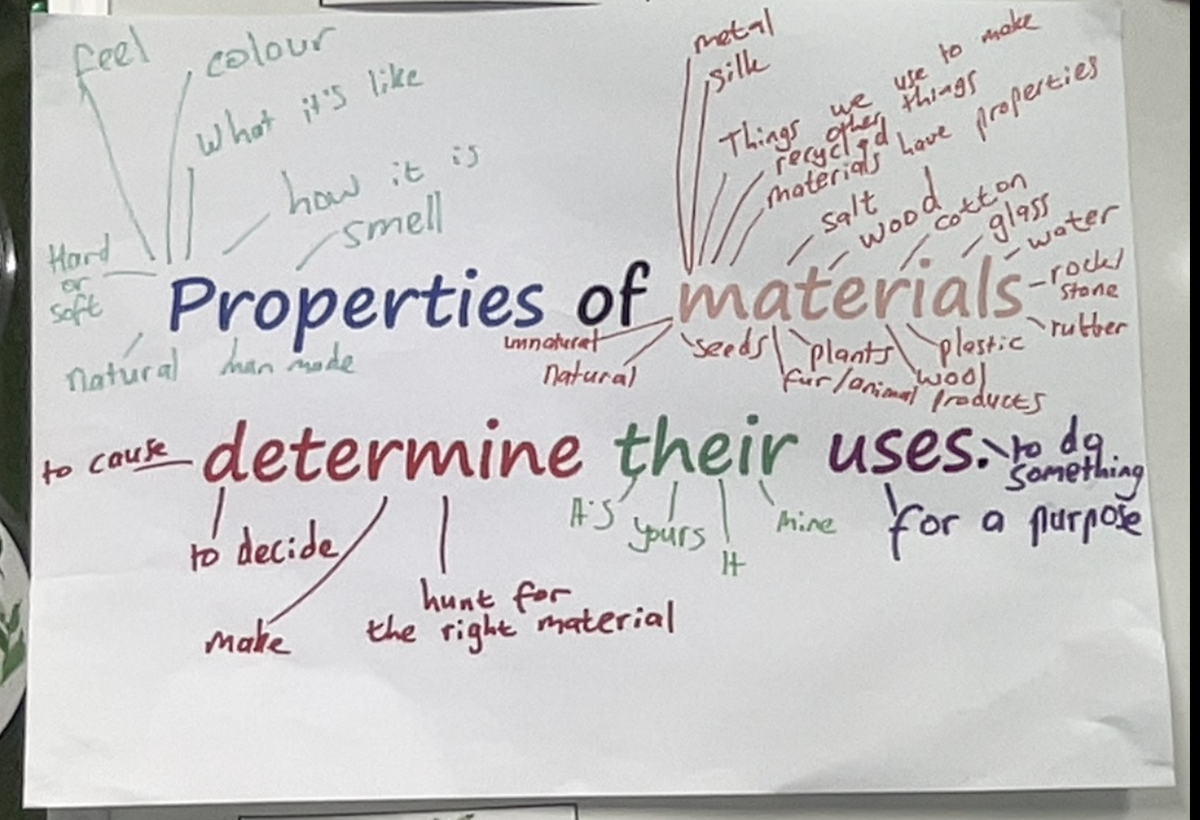 feel
colour
What it's like
how it is
smell
Hard
or
soft
metal
silk
Things we use to make
other things
recycled
materials have properties
salt
wood
cotton
glass
water
rock/
stone
rubber
Properties of materials
natural
man made
unnatural
natural
seeds
plants
fur/animal products
wool
plastic
to cause
determine their uses.
to do
something
for a purpose
to decide
make
hunt for
the right material
It's
yours
It
mine